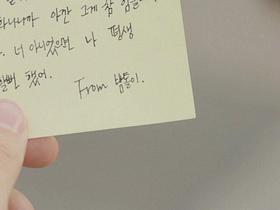 화나니까 약간 그게 참 힘들
. 너 아니었으면 나 평생
할뻔 했어.
From 밤톨이.